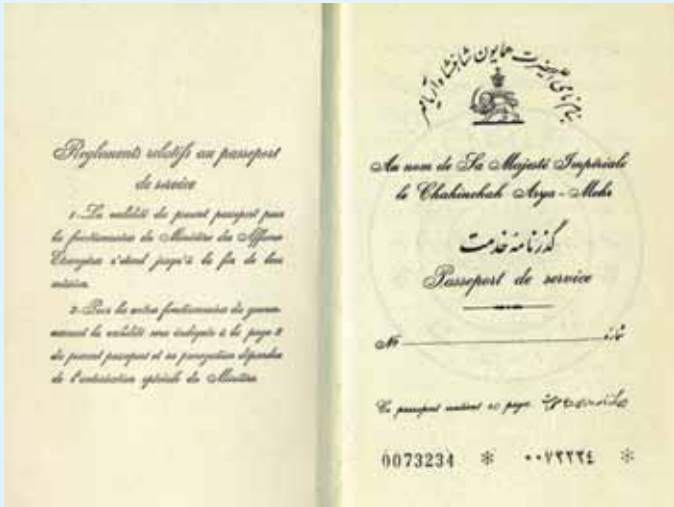 Règlements relatifs au passeport
de service
1-La validité du present passeport pour
le fonctionnaire du Ministère des Affaires
Etrangères s'étend jusqu'à la fin de leur
mission.
2-Pour les autres fonctionnaires du gouver-
nement la validité sera indiquée à la page 2
du present passeport et sa prorogation dépendra
de l'autorisation spéciale du Ministère.
بنام نامی اعلیحضرت همایون شاهنشاه آریامهر
Au nom de Sa Majesté Impériale
le Chahinchah Arya-Mehr
گذرنامه خدمت
Passeport de service
Nº شماره
Ce passeport contient 20 pages
0073234 * ۰۰۷۳۲۳۴ *